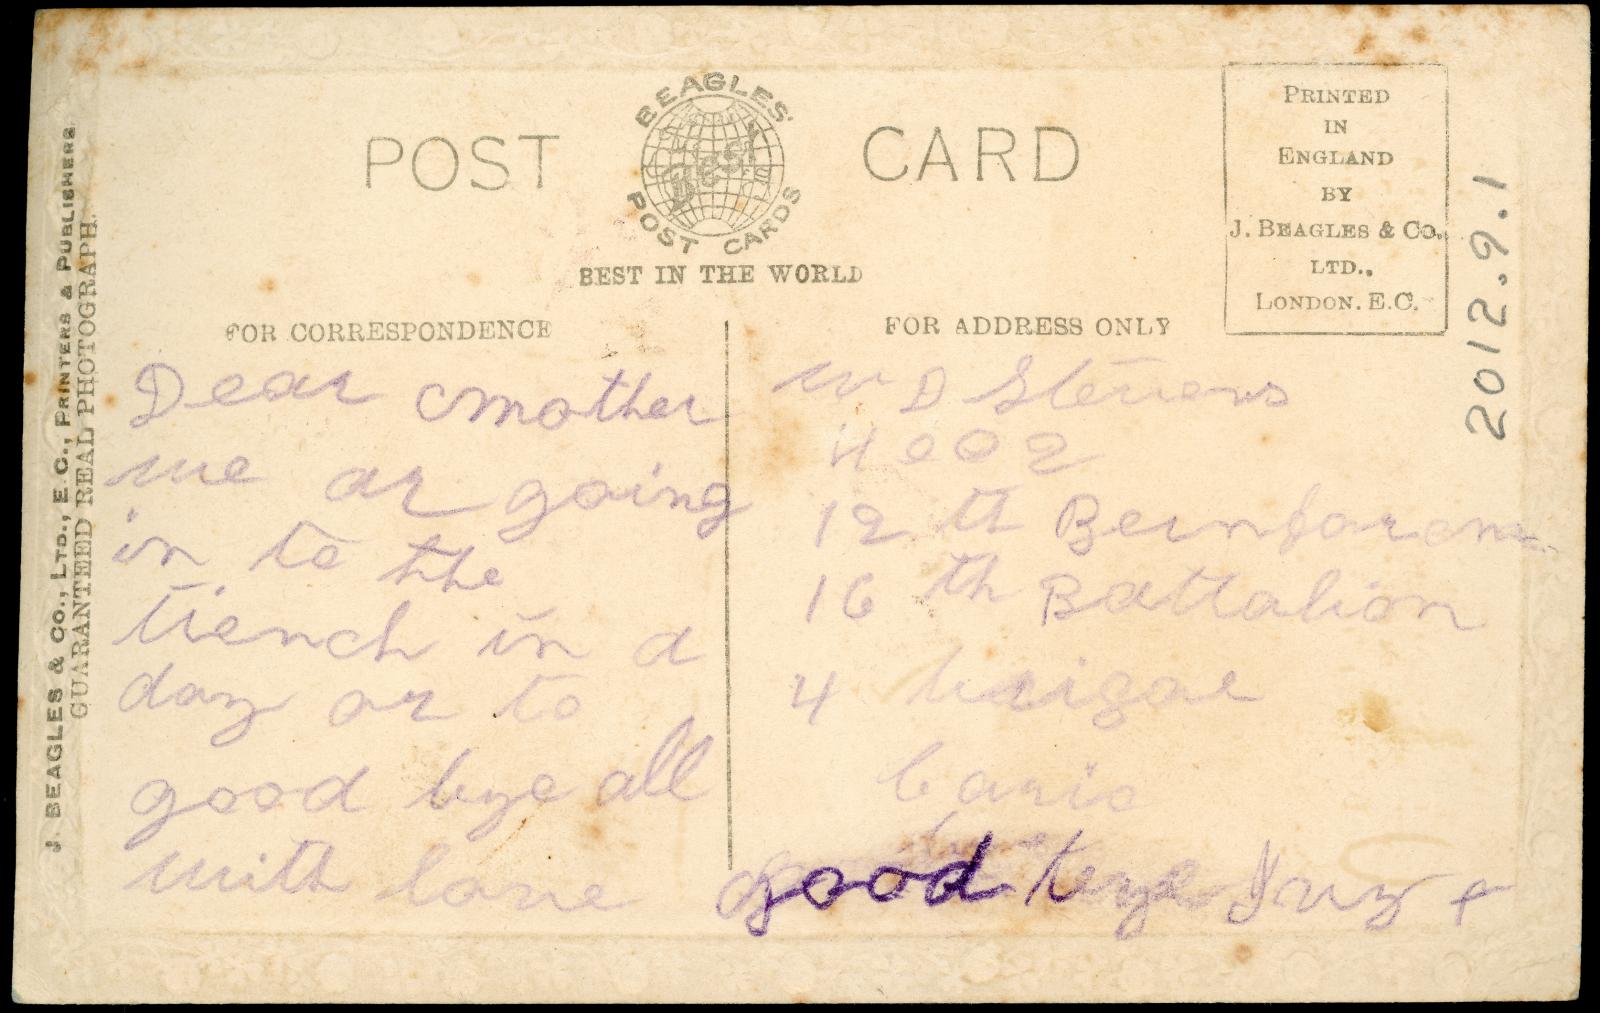 POST CARD
BEAGLES'
Best
POST CARDS
BEST IN THE WORLD
PRINTED
IN
ENGLAND
BY
J. BEAGLES & CO.
LTD.,
LONDON. E.C.
2012.9.1
J. BEAGLES & CO., LTD., E.C., PRINTERS & PUBLISHERS.
GUARANTEED REAL PHOTOGRAPH.
FOR CORRESPONDENCE
Dear Mother
we ar going
in to the
trench in a
day or to
good bye all
with love
FOR ADDRESS ONLY
W D Stevens
4002
12 th Beinforcm
16 th Battalion
4 brigae
Cario
good bye